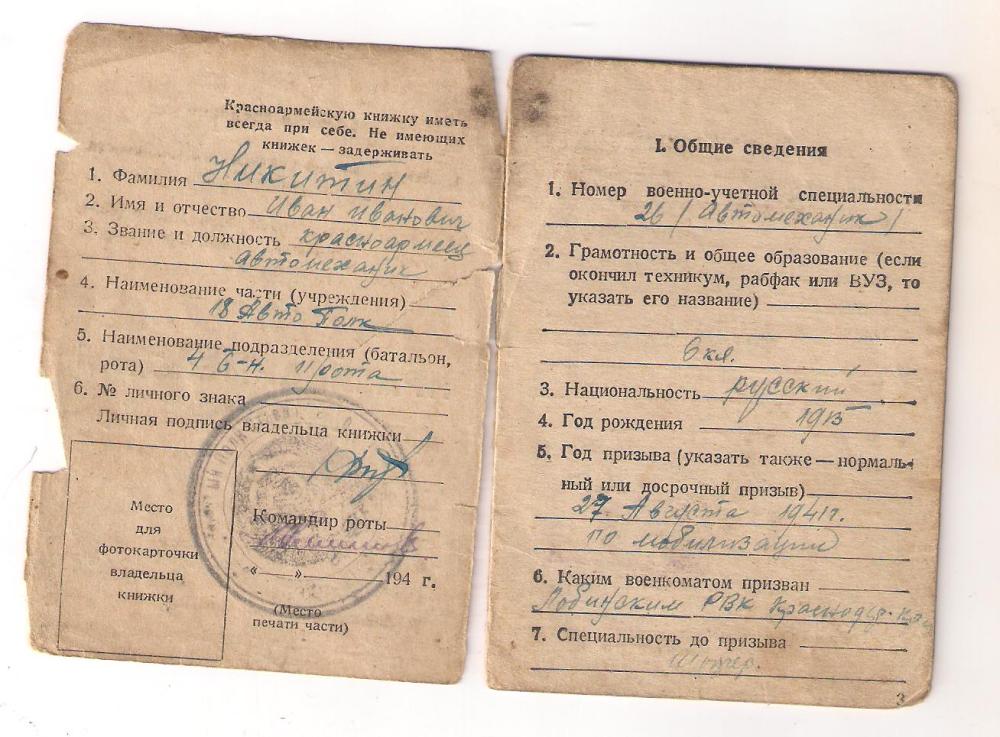 Красноармейскую книжку иметь
всегда при себе. Не имеющих
книжек — задерживать
1. Фамилия Никитин
2. Имя и отчество Иван Иванович
3. Звание и должность красноармеец
автомеханик
4. Наименование части (учреждения)
18 Авто Полк
5. Наименование подразделения (батальон,
рота) 4 б-н. рота
6. № личного знака
Личная подпись владельца книжки
Место
для
фотокарточки
владельца
книжки
Командир роты
« » 194 г.
(Место
печати части)
I. Общие сведения
1. Номер военно-учетной специальности
26 (Автомеханик)
2. Грамотность и общее образование (если
окончил техникум, рабфак или ВУЗ, то
указать его название)
6 кл.
3. Национальность русский
4. Год рождения 1915
5. Год призыва (указать также — нормаль-
ный или досрочный призыв)
27 Августа 1941г.
по мобилизации
6. Каким военкоматом призван
Лабинским РВК
7. Специальность до призыва
Шофер.
3